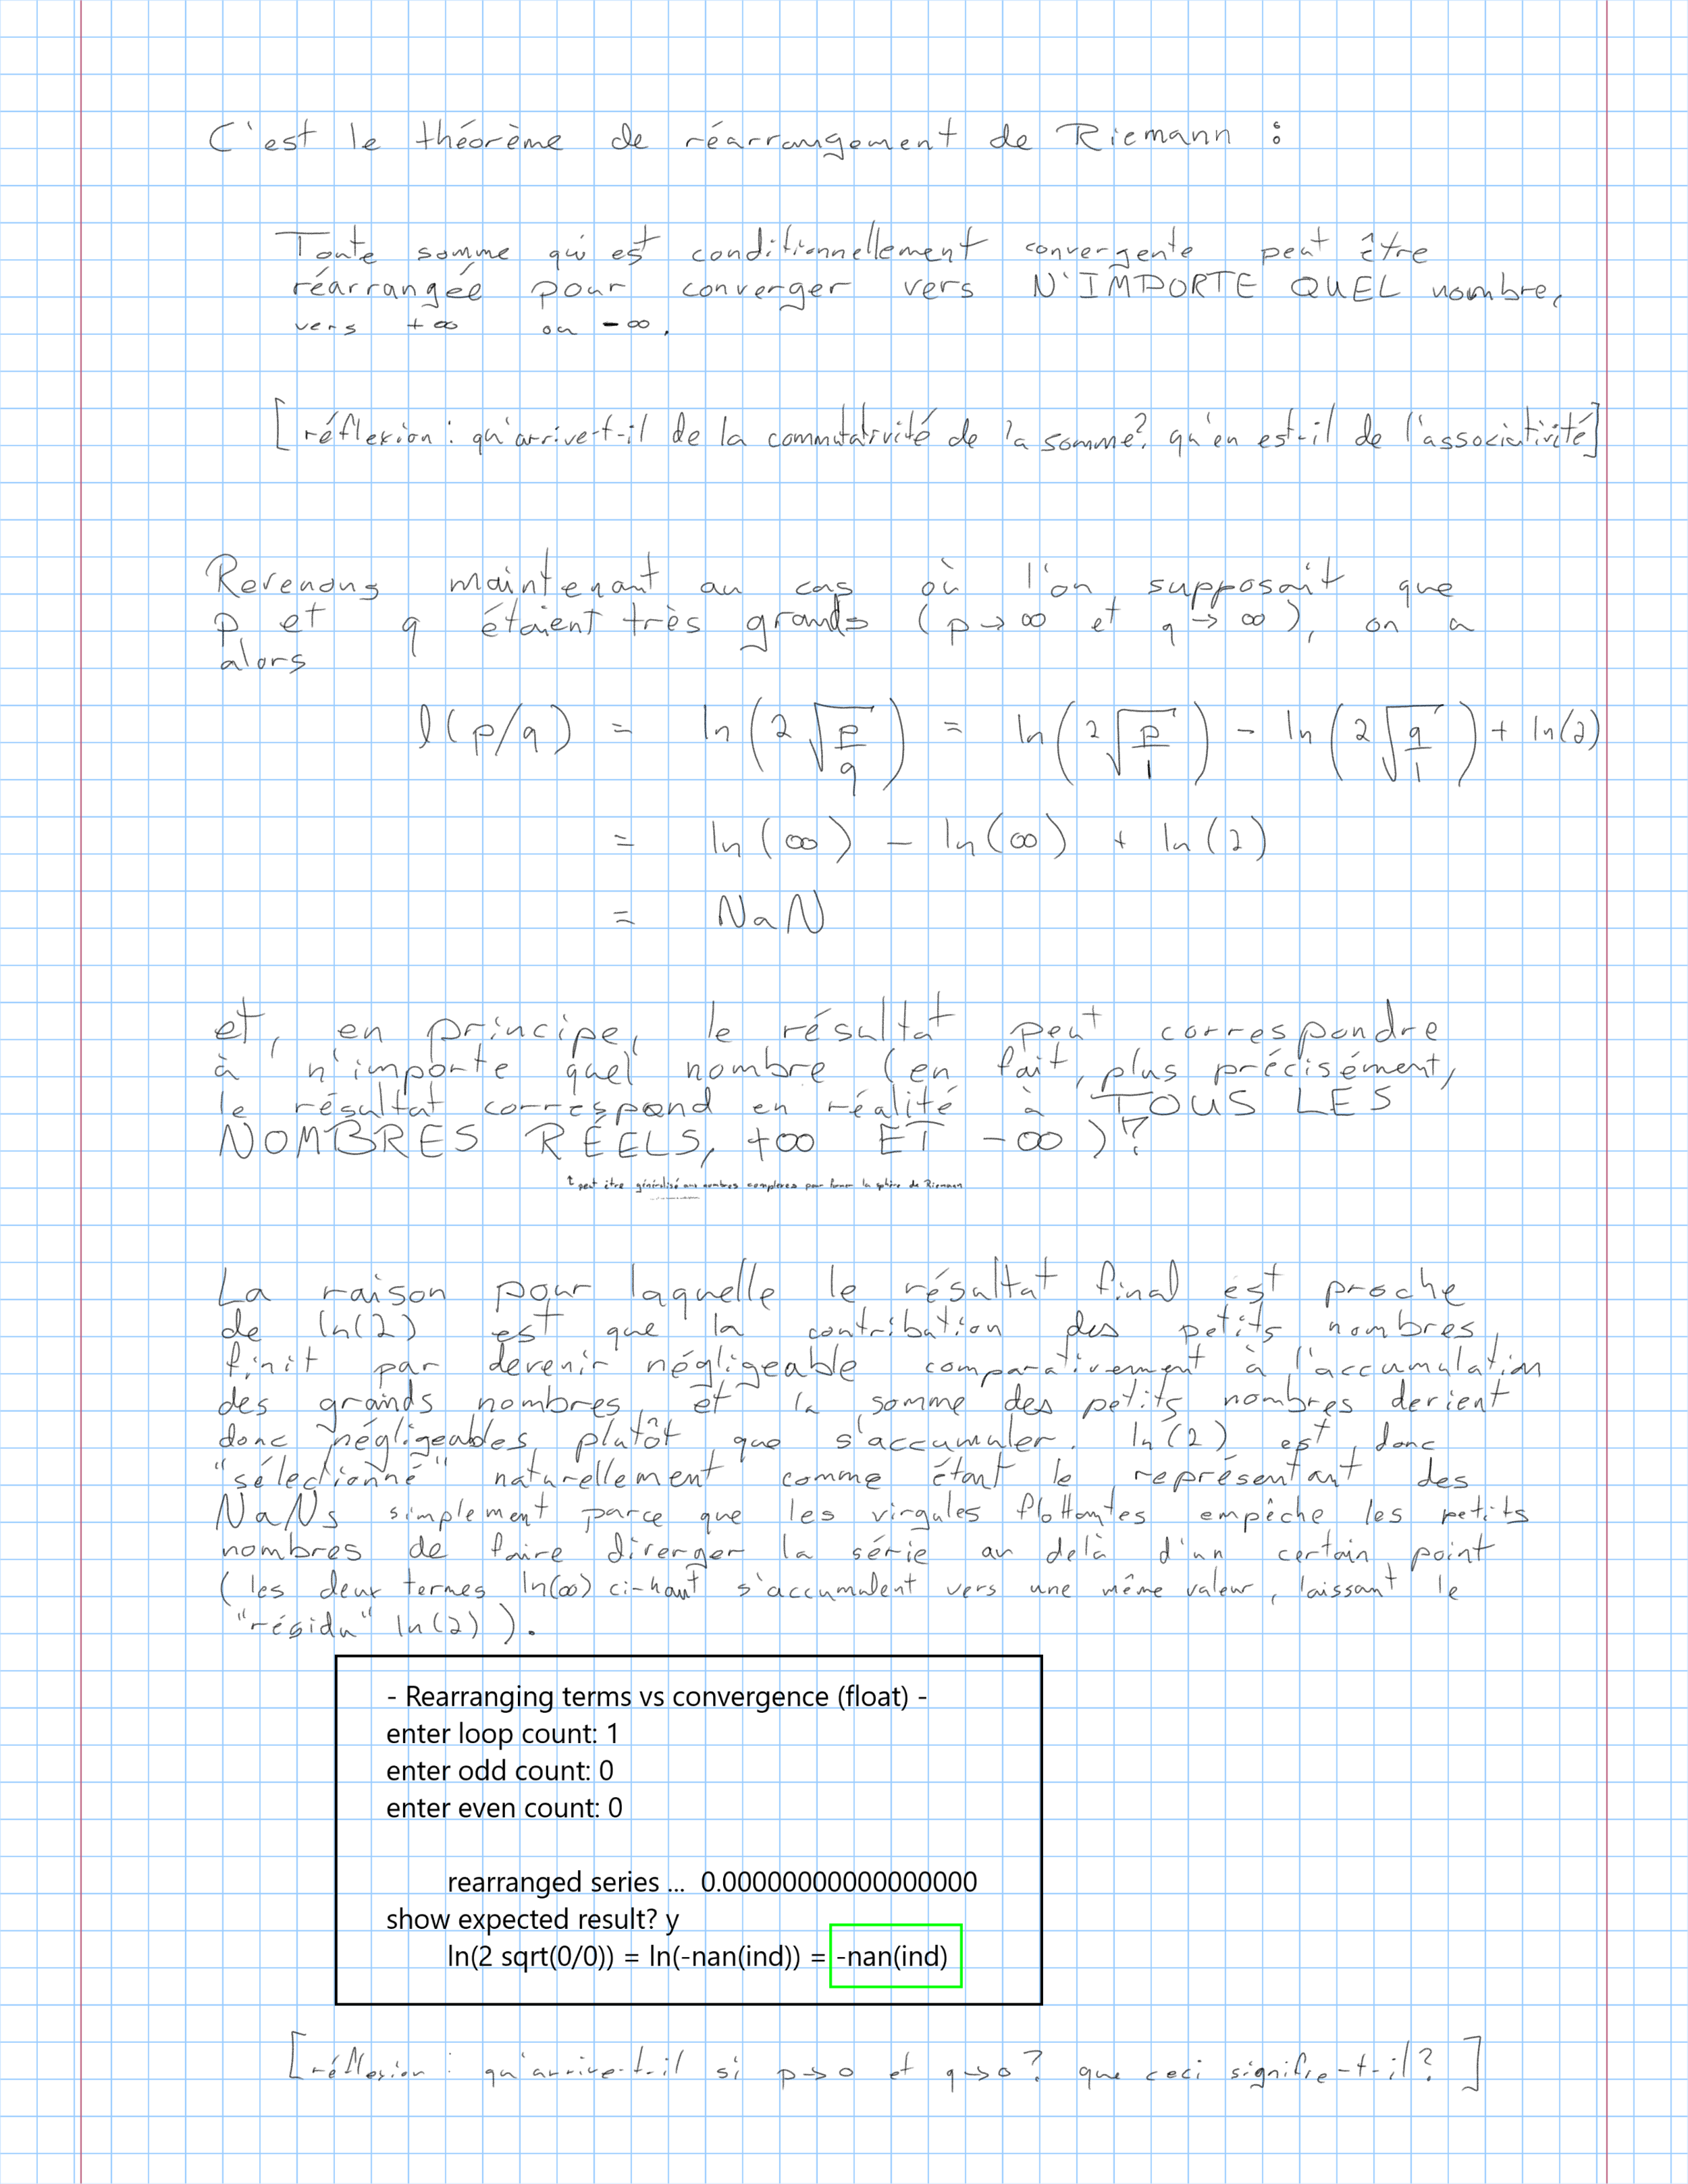 C'est le théorème de réarrangement de Riemann :
Toute somme qui est conditionnellement convergente peut être
réarrangée pour converger vers N'IMPORTE QUEL nombre,
vers +∞ ou -∞.
[réflexion : qu'arrive-t-il de la commutativité de la somme? qu'en est-il de l'associativité]
Revenons maintenant au cas où l'on supposait que
p et q étaient très grands (p→∞ et q→∞), on a
alors
l(p/q) = ln(2√(p/q)) = ln(2√(p/1)) - ln(2√(q/1)) + ln(2)
= ln(∞) - ln(∞) + ln(2)
= NaN
et, en principe, le résultat peut correspondre
à n'importe quel nombre (en fait, plus précisément,
le résultat correspond en réalité à TOUS LES
NOMBRES RÉELS, +∞ ET -∞)!?
↑ peut être généralisé aux nombres complexes pour former la sphère de Riemann
La raison pour laquelle le résultat final est proche
de ln(2) est que la contribution des petits nombres
finit par devenir négligeable comparativement à l'accumulation
des grands nombres, et la somme des petits nombres devient
donc négligeables plutôt que s'accumuler. ln(2) est donc
"sélectionné" naturellement comme étant le représentant des
NaNs simplement parce que les virgules flottantes empêche les petits
nombres de faire diverger la série au delà d'un certain point
(les deux termes ln(∞) ci-haut s'accumulent vers une même valeur, laissant le
"résidu" ln(2)).
- Rearranging terms vs convergence (float) -
enter loop count: 1
enter odd count: 0
enter even count: 0
rearranged series ... 0.00000000000000000
show expected result? y
ln(2 sqrt(0/0)) = ln(-nan(ind)) = -nan(ind)
[réflexion : qu'arrive-t-il si p→0 et q→0? que ceci signifie-t-il?]